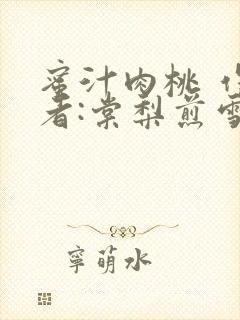 蜜汁肉桃 作
者:棠梨煎雪
寧萌水